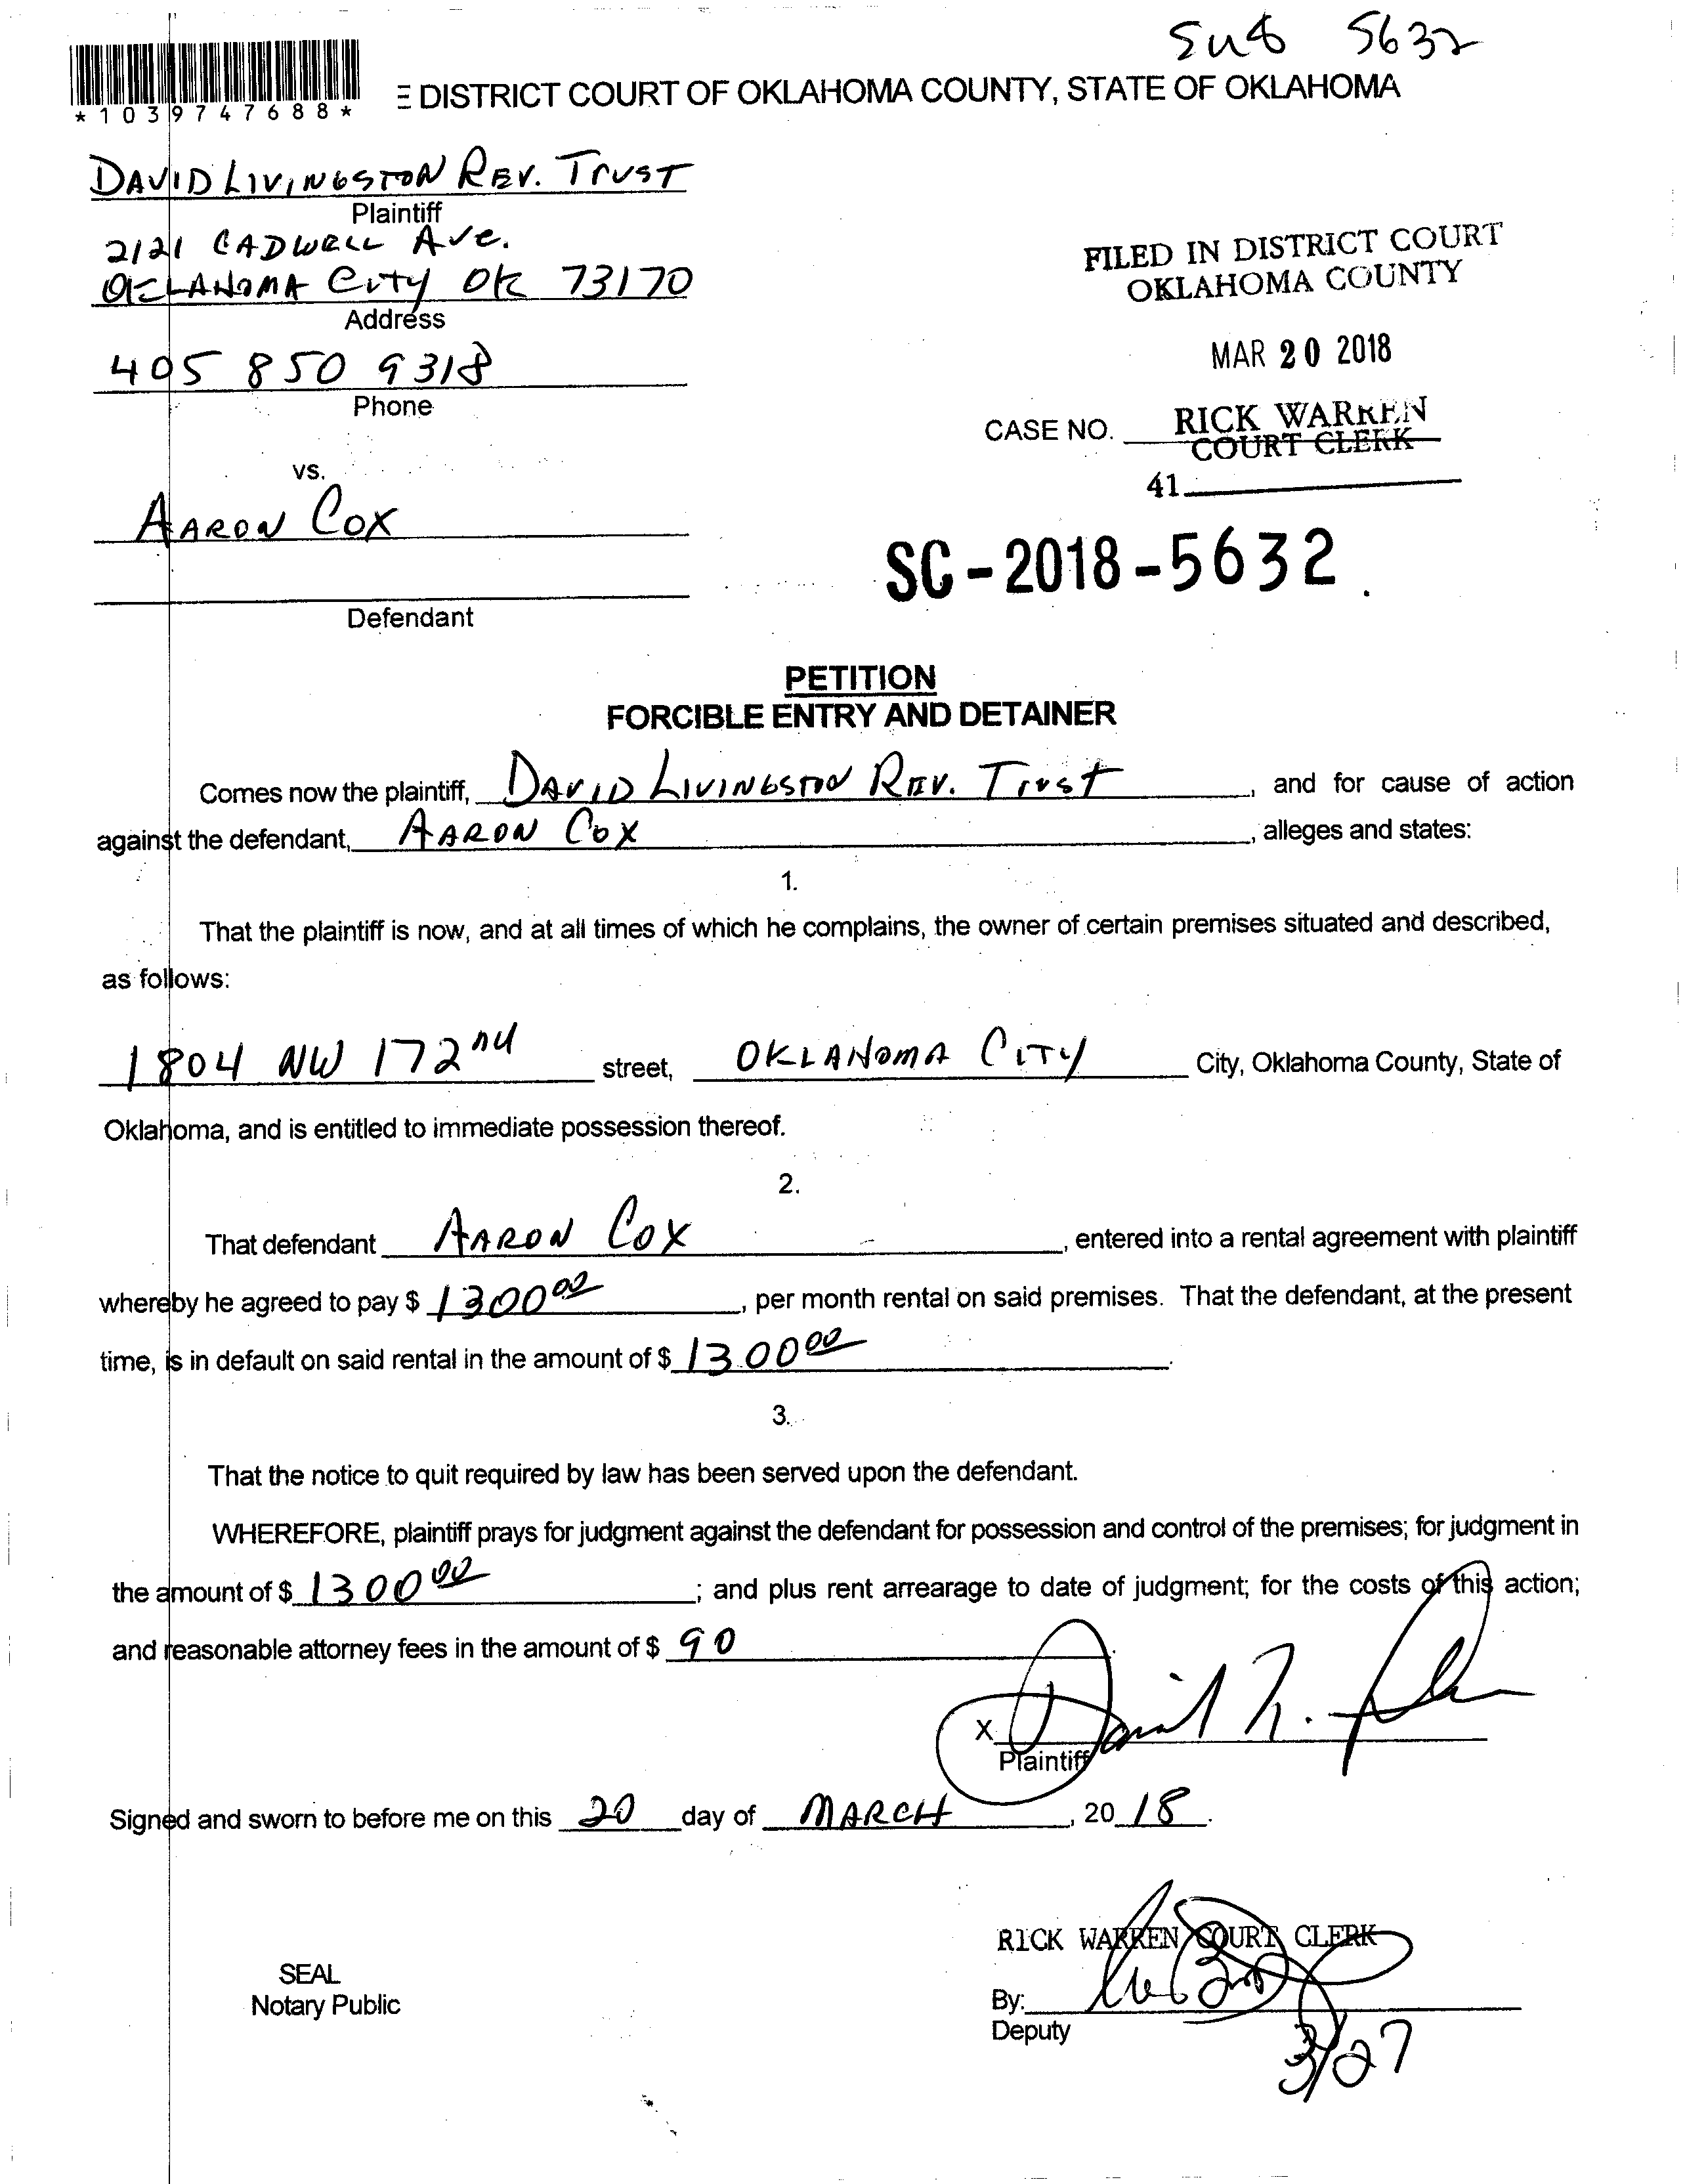 5632
*1039747688*
E DISTRICT COURT OF OKLAHOMA COUNTY, STATE OF OKLAHOMA
DAVID LIVINGSTON REV. TRUST
Plaintiff
2121 CADWELL AVE.
OKLAHOMA CITY OK 73170
Address
405 850 9318
Phone
FILED IN DISTRICT COURT
OKLAHOMA COUNTY
MAR 20 2018
CASE NO. RICK WARREN
COURT CLERK
41
vs.
AARON COX
Defendant
SC-2018-5632
PETITION
FORCIBLE ENTRY AND DETAINER
Comes now the plaintiff, DAVID LIVINGSTON REV. Trust, and for cause of action
against the defendant, AARON COX, alleges and states:
1.
That the plaintiff is now, and at all times of which he complains, the owner of certain premises situated and described,
as follows:
1804 NW 172nd street, OKLAHOMA CITY City, Oklahoma County, State of
Oklahoma, and is entitled to immediate possession thereof.
2.
That defendant AARON COX, entered into a rental agreement with plaintiff
whereby he agreed to pay $ 1300 00, per month rental on said premises. That the defendant, at the present
time, is in default on said rental in the amount of $ 1300 00.
3.
That the notice to quit required by law has been served upon the defendant.
WHEREFORE, plaintiff prays for judgment against the defendant for possession and control of the premises; for judgment in
the amount of $ 1300 00; and plus rent arrearage to date of judgment; for the costs of this action;
and reasonable attorney fees in the amount of $ 90.
X
Plaintiff
Signed and sworn to before me on this 20 day of MARCH, 20 18.
RICK WARREN COURT CLERK
SEAL
Notary Public
By:
Deputy
3/27